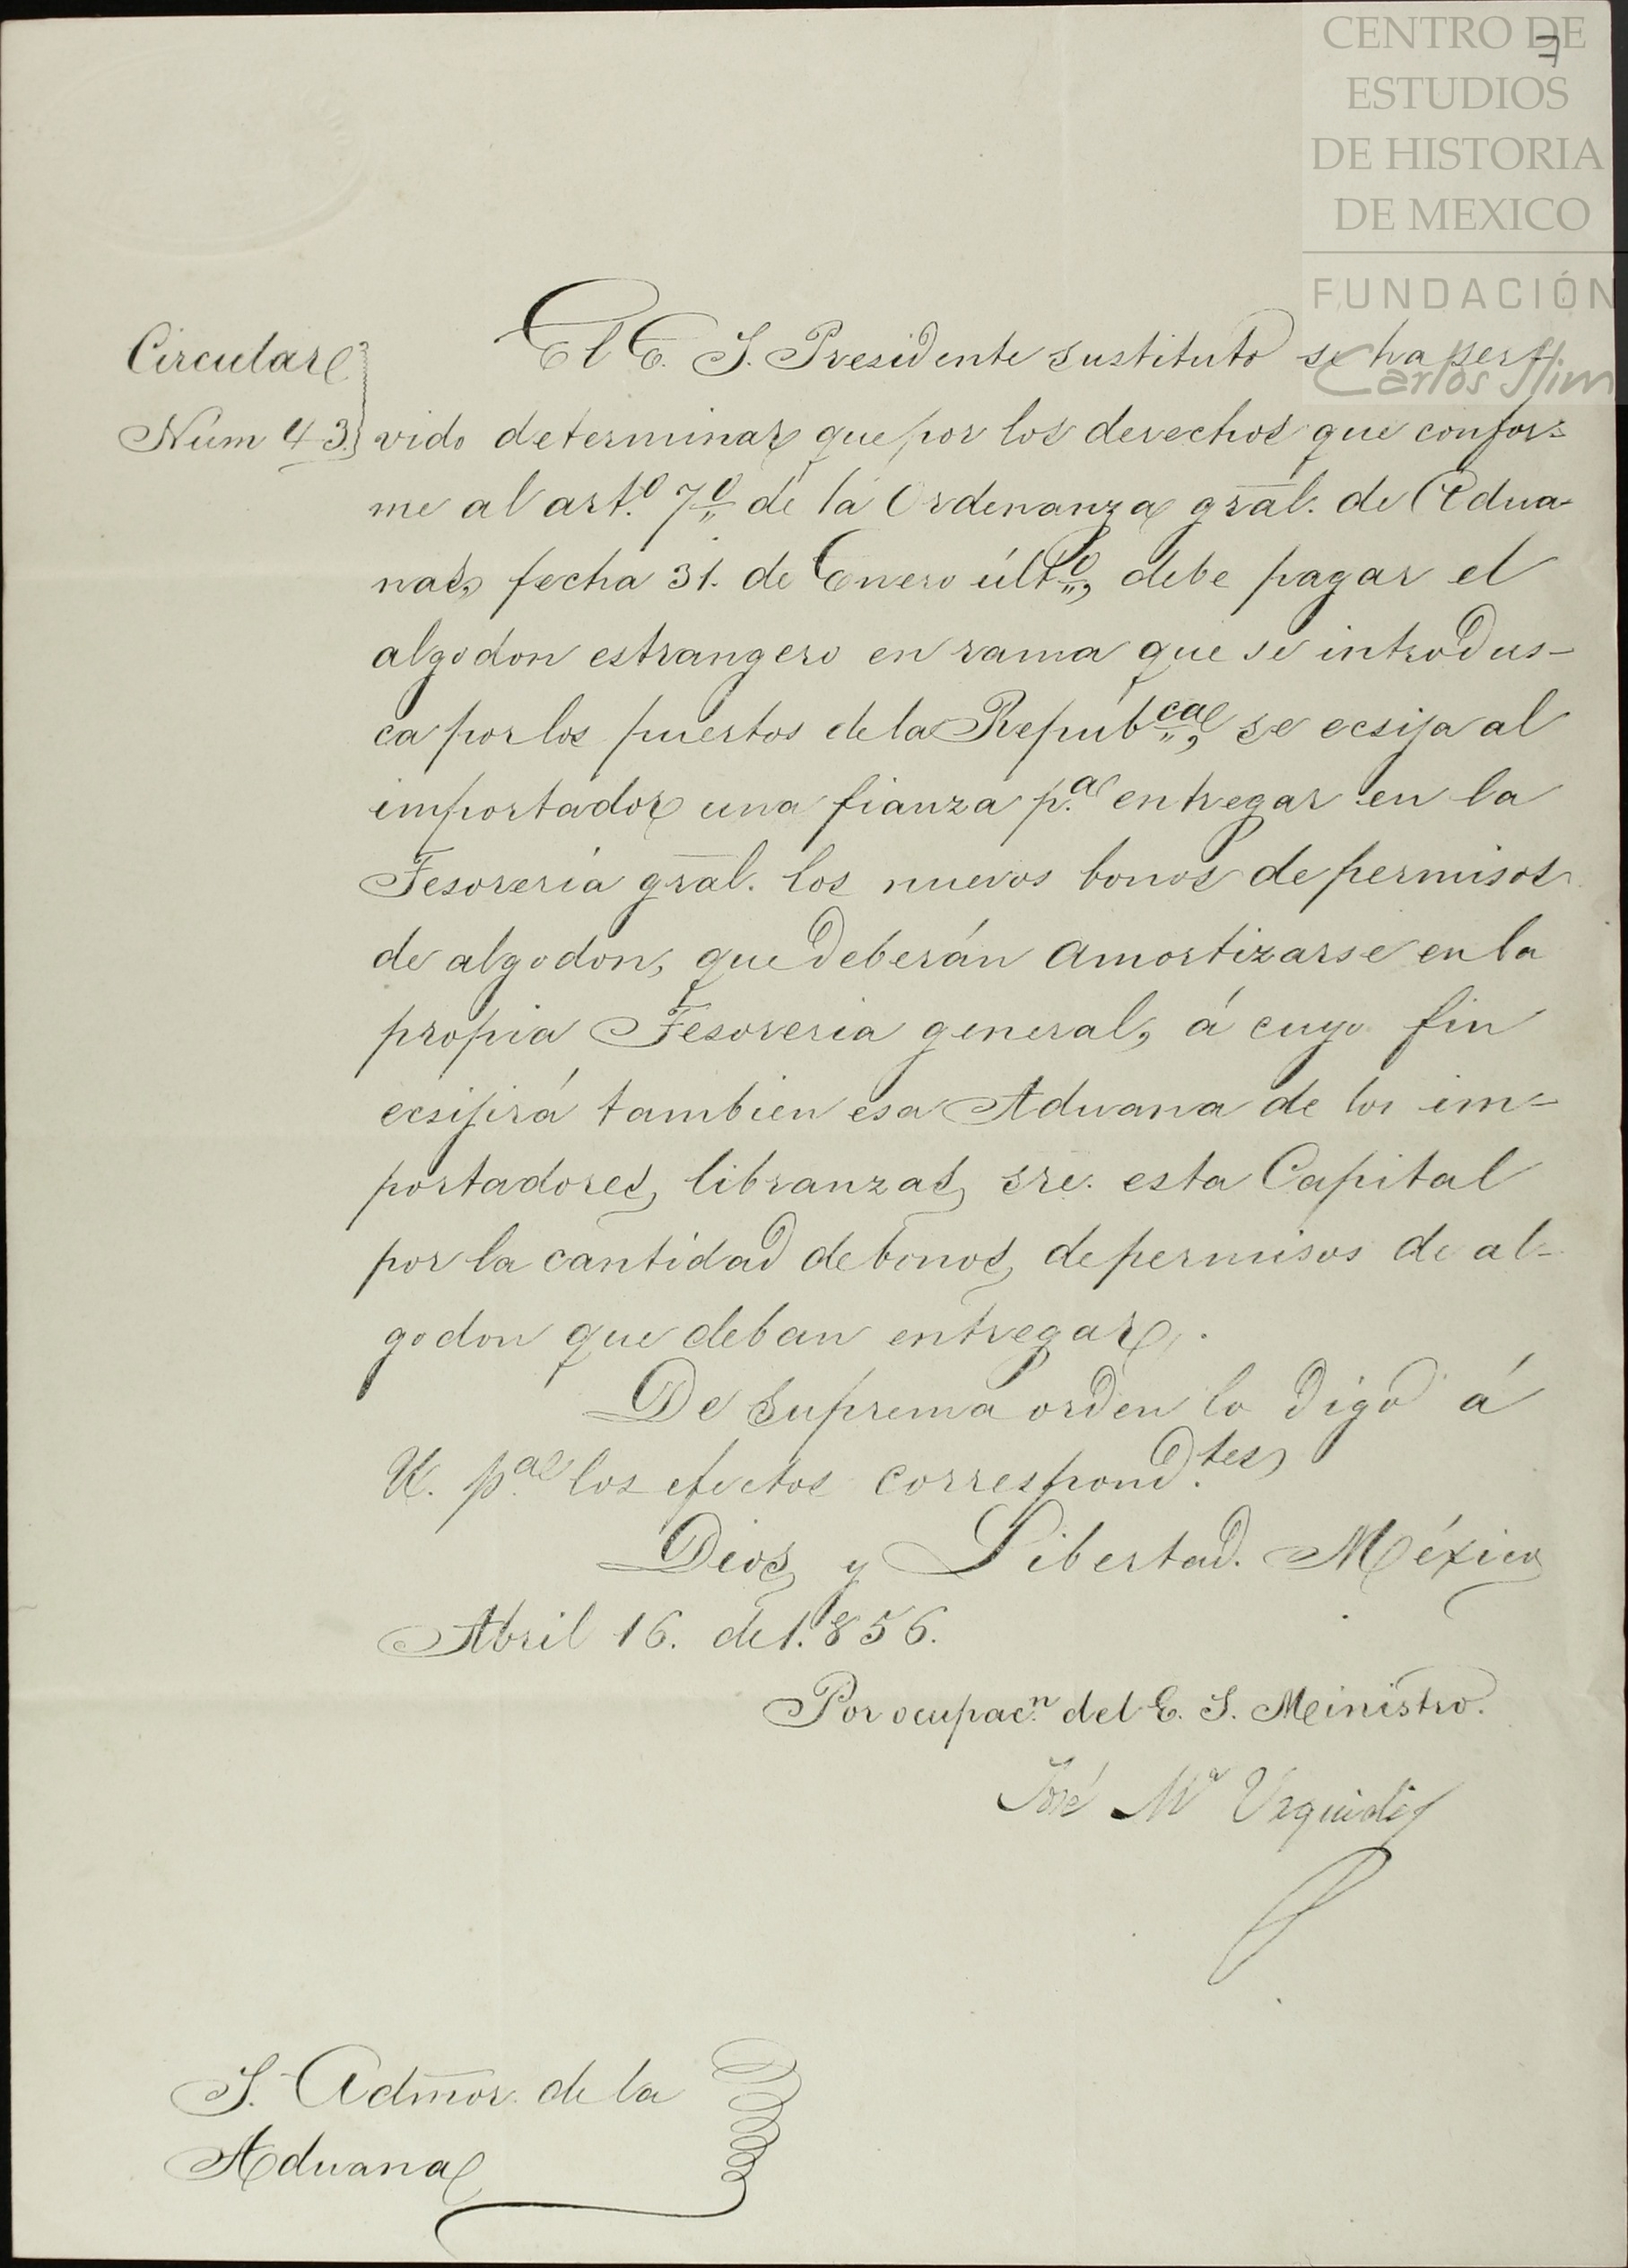 CENTRO DE
ESTUDIOS
DE HISTORIA
DE MEXICO
FUNDACIÓN
Carlos Slim
7
Circular
Núm 43.
El E. S. Presidente sustituto se ha ser-
vido determinar que por los derechos que confor-
me al art.º 7º de la Ordenanza gral. de Adua-
nas, fecha 31. de Enero últº, debe pagar el
algodon estrangero en rama que se introdus-
ca por los puertos de la Repúbca, se ecsija al
importador una fianza p.a entregar en la
Tesoreria gral. los nuevos bonos de permisos
de algodon, que deberán amortizarse en la
propia Tesoreria general, á cuyo fin
ecsijirá tambien esa Aduana de los im-
portadores, libranzas, sre. esta Capital
por la cantidad de bonos, de permisos de al-
godon que deban entregar.
De suprema orden lo digo á
U. p.a los efectos correspond.tes
Dios y Libertad. México
Abril 16. de 1.856.
Por ocupac.n del E. S. Ministro.
José Mª Urquidi
S. Admor. de la
Aduana